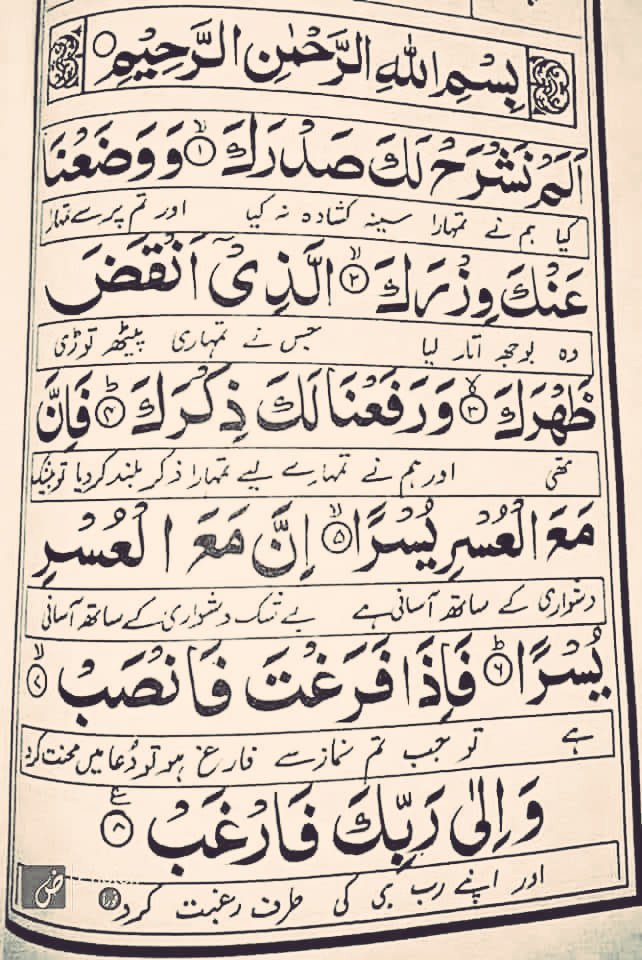 بِسْمِ اللهِ الرَّحْمٰنِ الرَّحِيْمِ ○
اَلَمْ نَشْرَحْ لَكَ صَدْرَكَ ۙ﴿۱﴾ وَوَضَعْنَا
کیا ہم نے تمہارا سینہ کشادہ نہ کیا اور تم پر سے تمہارا
عَنْكَ وِزْرَكَ ۙ﴿۲﴾ الَّذِيْۤ اَنْقَضَ
وہ بوجھ اتار لیا جس نے تمہاری پیٹھ توڑی
ظَهْرَكَ ۙ﴿۳﴾ وَرَفَعْنَا لَكَ ذِكْرَكَ ؕ﴿۴﴾ فَاِنَّ
تھی اور ہم نے تمہارے لیے تمہارا ذکر بلند کردیا تو بیشک
مَعَ الْعُسْرِ يُسْرًا ۙ﴿۵﴾ اِنَّ مَعَ الْعُسْرِ
دشواری کے ساتھ آسانی ہے بے شک دشواری کے ساتھ آسانی
يُسْرًا ؕ﴿۶﴾ فَاِذَا فَرَغْتَ فَانْصَبْ ۙ﴿۷﴾
ہے تو جب تم نماز سے فارغ ہو تو دُعا میں محنت کرو
وَاِلٰى رَبِّكَ فَارْغَبْ ﴿۸﴾ ع
اور اپنے رب ہی کی طرف رغبت کرو
ض